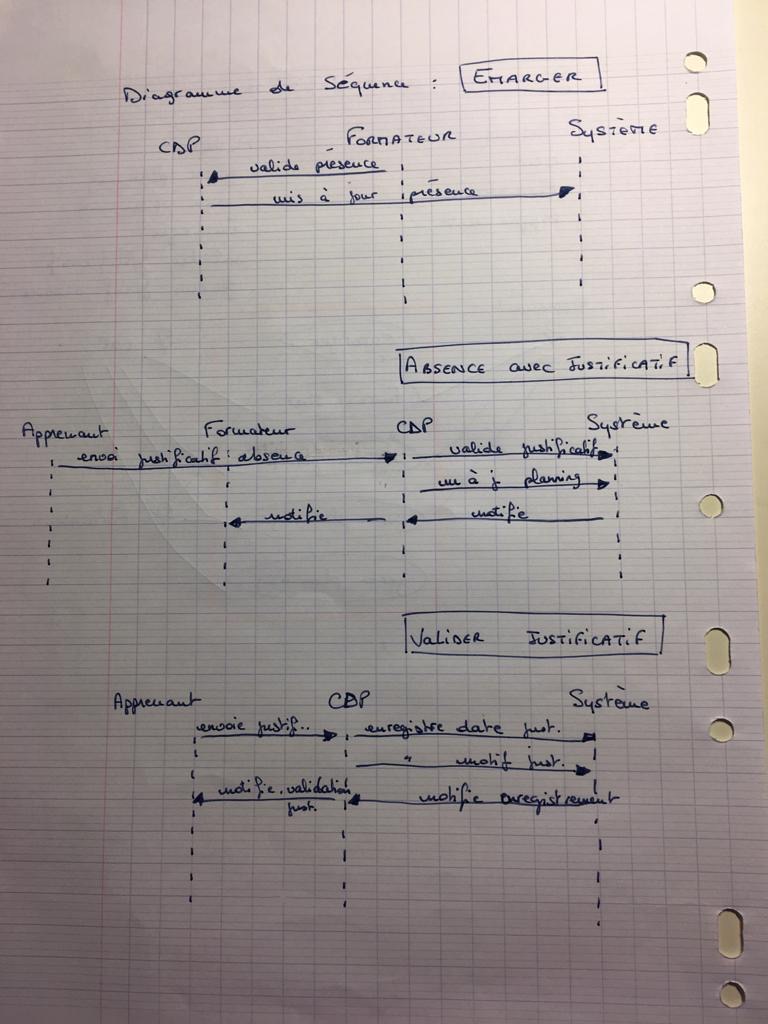 Diagramme de Séquence : EMARGER
CDP FORMATEUR SYSTÈME
valide présence
mis à jour présence
ABSENCE avec JUSTIFICATIF
Apprenant Formateur CDP Système
envoi justificatif absence valide justificatif
m à j planning
notifie notifie
VALIDER JUSTIFICATIF
Apprenant CDP Système
envoie justif.. enregistre date just.
" motif just.
notifie validation notifie enregistrement
just.